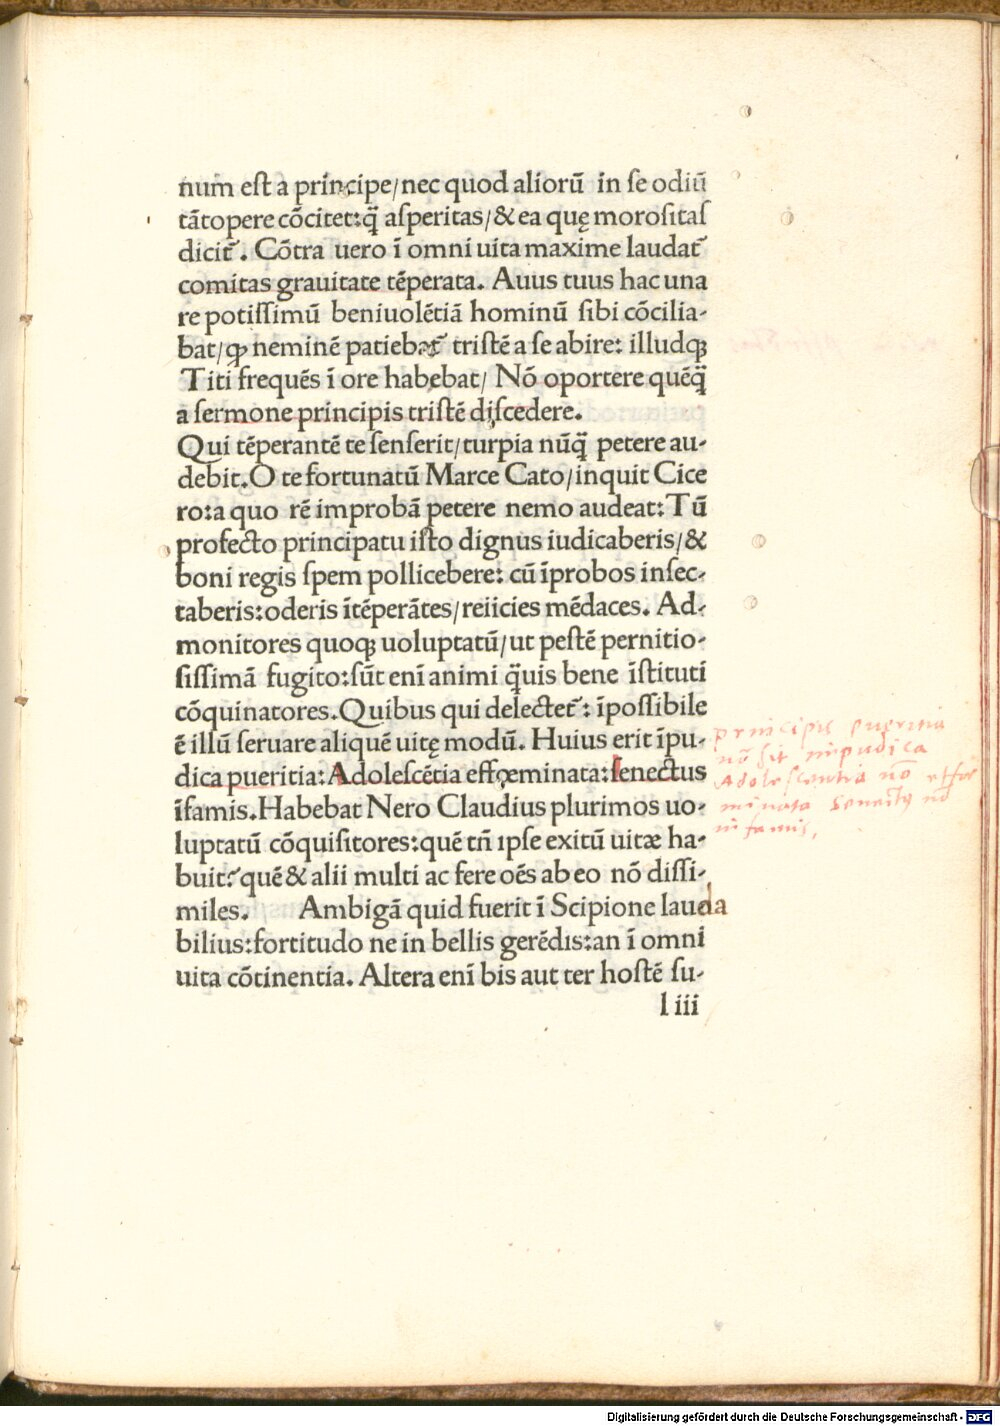 num est a principe/nec quod aliorũ in se odiũ
tãtopere cõcitet:q̃ asperitas/&ea quę morositas
dicit᷒. Cõtra uero ĩ omni uita maxime laudat᷒
comitas grauitate tẽperata. Auus tuus hac una
re potissimũ beniuolẽtiã hominũ sibi cõcilia-
bat/ꝙ neminẽ patiebat᷒ tristẽ a se abire: illudqꝫ
Titi frequẽs ĩ ore habebat/ Nõ oportere quẽq̃
a sermone principis tristẽ discedere.
Qui tẽperantẽ te senserit/turpia nũq̃ petere au-
debit.O te fortunatũ Marce Cato/inquit Cice
ro:a quo rẽ improbã petere nemo audeat:Tũ
profecto principatu isto dignus iudicaberis/&
boni regis spem pollicebere: cũ ĩprobos insec-
taberis:oderis ĩtẽperãtes/reiicies mẽdaces. Ad-
monitores quoqꝫ uoluptatũ/ut pestẽ pernitio-
sissimã fugito:sũt enĩ animi q̃uis bene ĩstituti
cõquinatores.Quibus qui delectet᷒: ĩpossibile
ẽ illũ seruare aliquẽ uitę modũ. Huius erit ĩpu-
dica pueritia:Adolescẽtia effœminata:senectus
ĩfamis.Habebat Nero Claudius plurimos uo-
luptatũ cõquisitores:quẽ tñ ipse exitũ uitæ ha-
buit?quẽ&alii multi ac fere oẽs ab eo nõ dissi-
miles. Ambigã quid fuerit ĩ Scipione lauda
bilius:fortitudo ne in bellis gerẽdis:an ĩ omni
uita cõtinentia. Altera enĩ bis aut ter hostẽ su-
l iii
principis pueritia
nõ sit impudica
Adolescentia nõ effœ
minata senectus nõ
infamis,
Digitalisierung gefördert durch die Deutsche Forschungsgemeinschaft - DFG